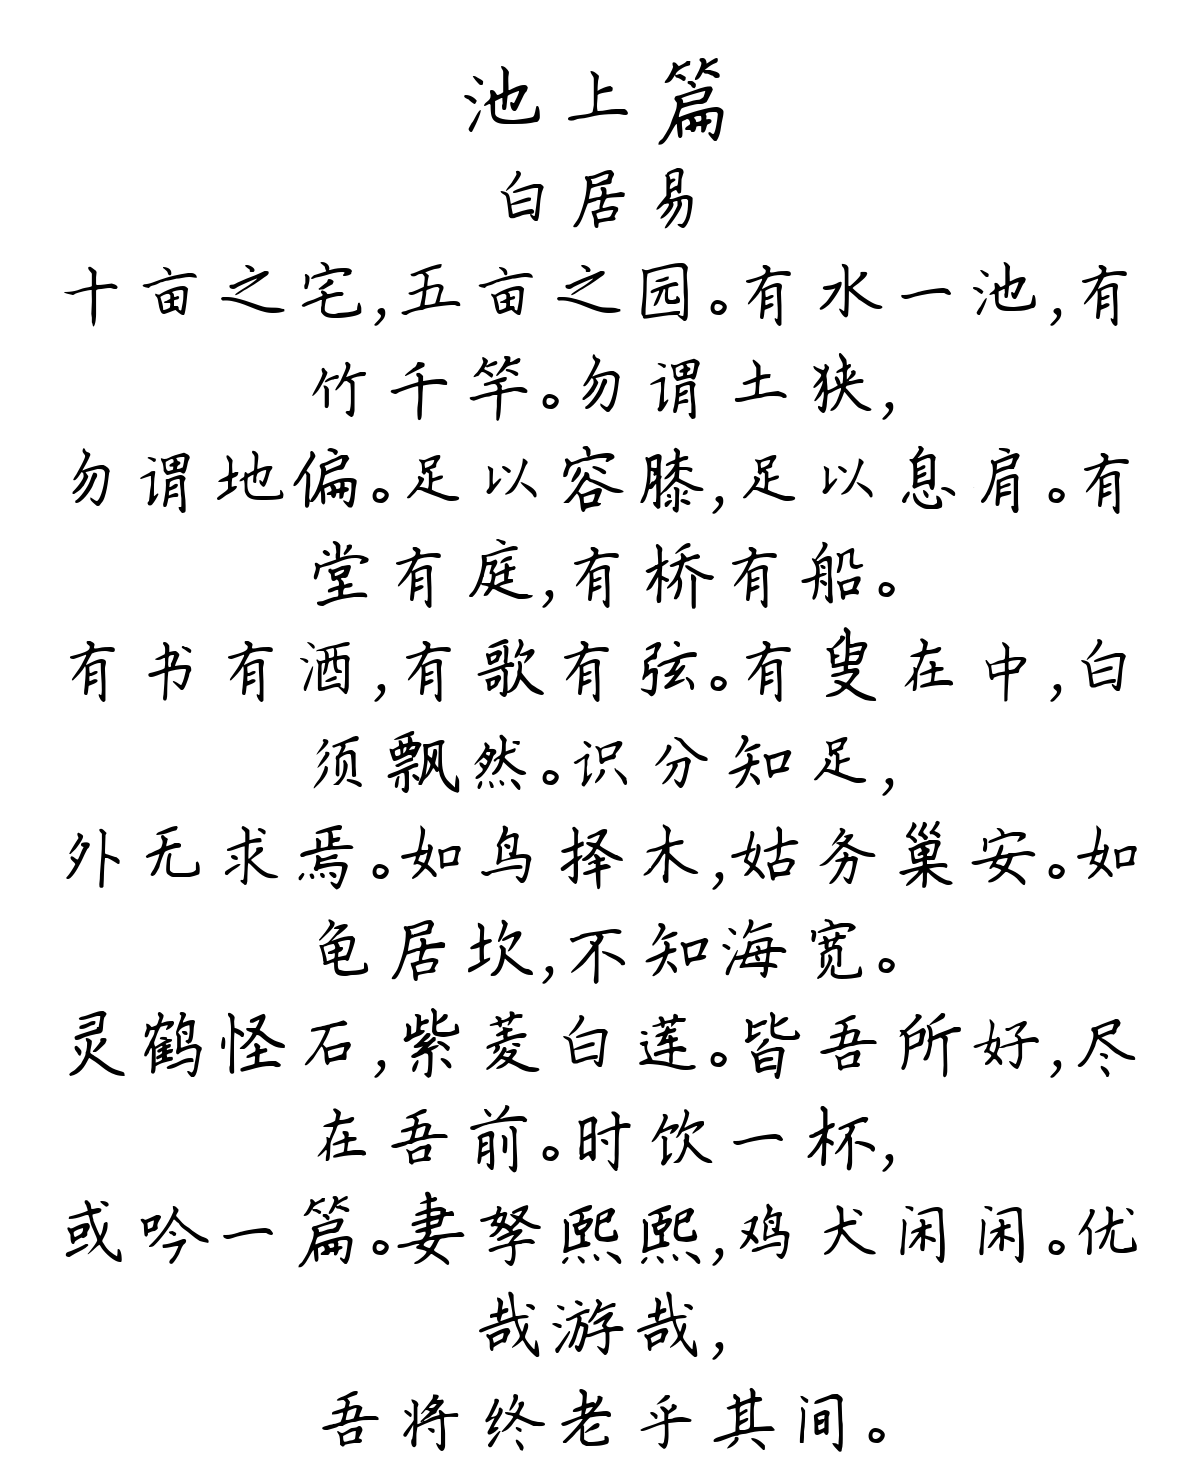 池上篇
白居易
十亩之宅,五亩之园。有水一池,有
竹千竿。勿谓土狭,
勿谓地偏。足以容膝,足以息肩。有
堂有庭,有桥有船。
有书有酒,有歌有弦。有叟在中,白
须飘然。识分知足,
外无求焉。如鸟择木,姑务巢安。如
龟居坎,不知海宽。
灵鹤怪石,紫菱白莲。皆吾所好,尽
在吾前。时饮一杯,
或吟一篇。妻孥熙熙,鸡犬闲闲。优
哉游哉,
吾将终老乎其间。